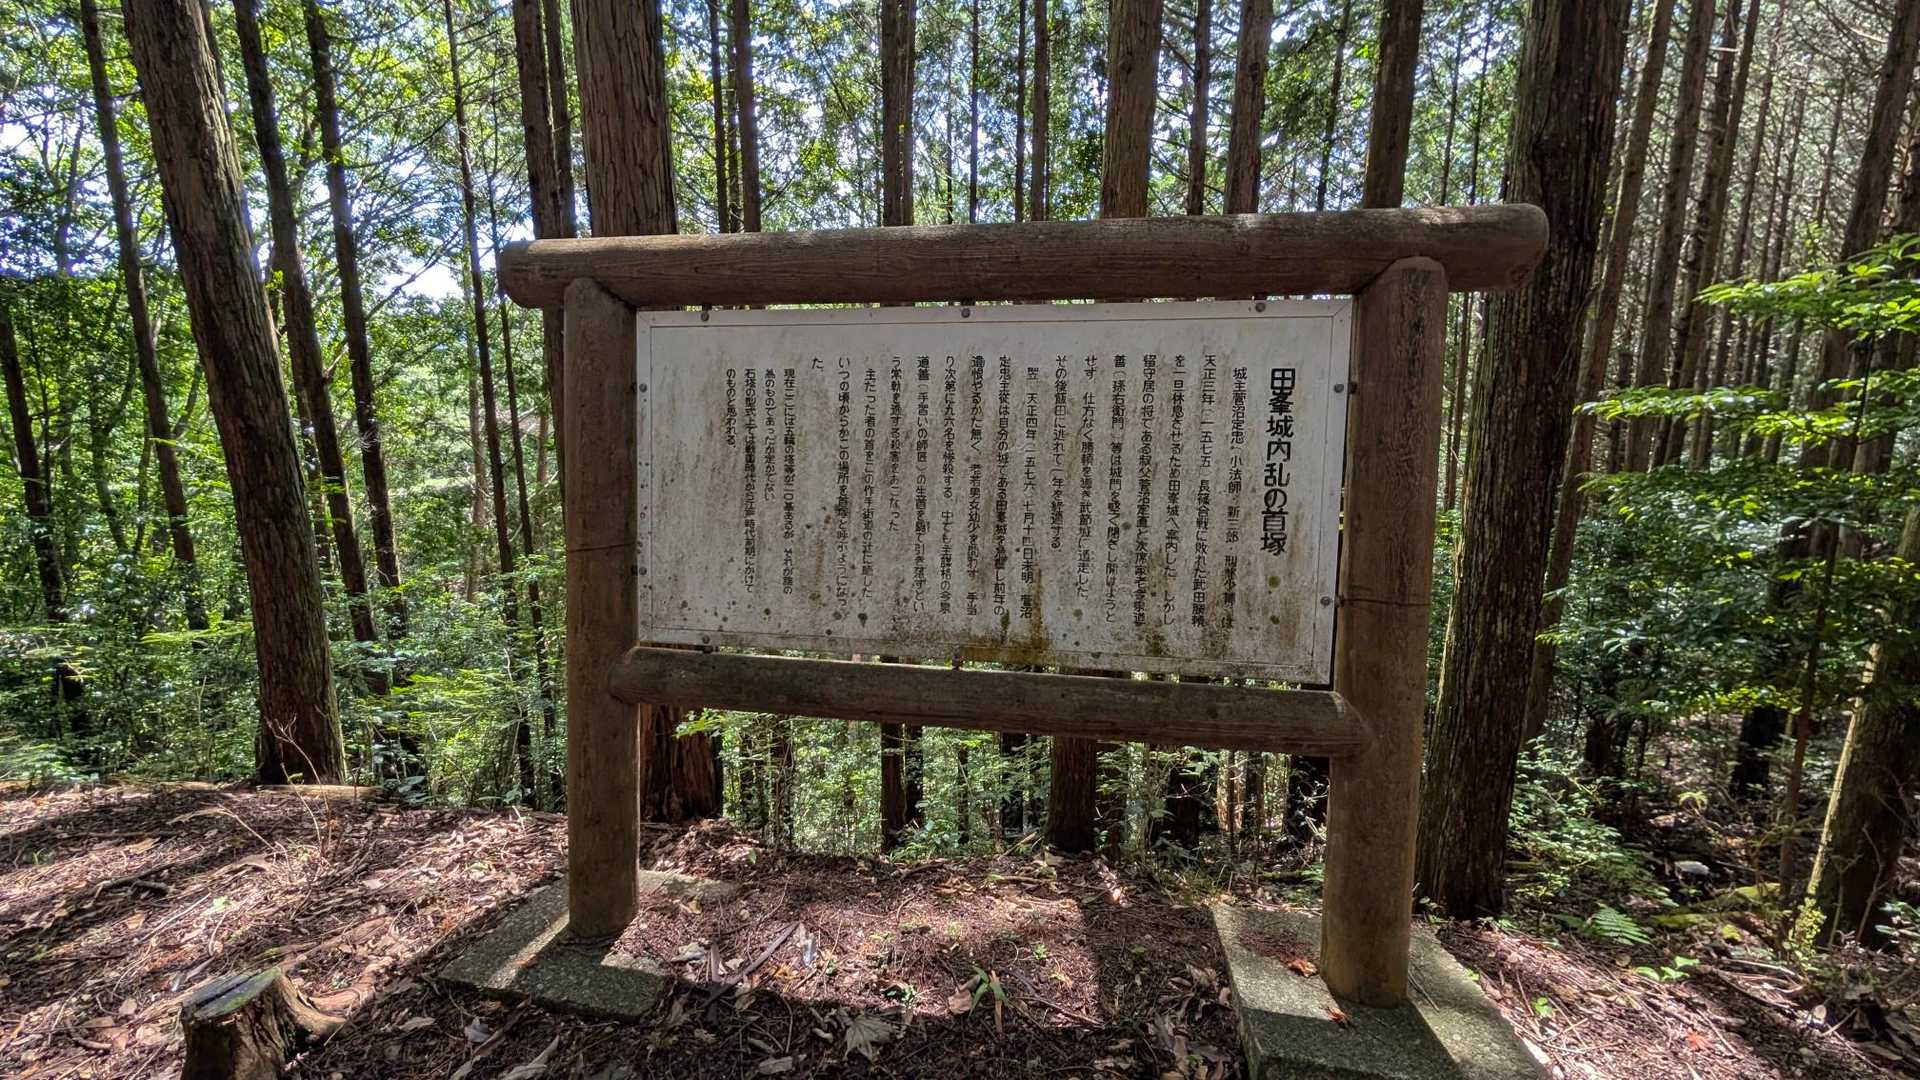 田峯城内乱の首塚
城主菅沼定忠(小法師・新三郎・刑部少輔)は
天正三年(一五七五)長篠合戦に敗れた武田勝頼
を一旦休息させるため田峯城へ案内した。しかし
留守居の将である叔父菅沼定直と次席家老今泉道
善(孫右衛門)等は城門を堅く閉ざし開けようと
せず、仕方なく勝頼を導き武節城に遁走した。
その後飯田に逃れて一年を経過する。
翌、天正四年(一五七六)七月十四日未明、菅沼
定忠主従は自分の城である田峯城を急襲し前年の
遺恨やるかた無く、老若男女幼少を問わず、手当
り次第に九六名を惨殺する。中でも主謀格の今泉
道善(手習いの師匠)の生首を鋸で引き落すとい
う常軌を逸する殺害をおこなった。
主だった者の首をこの作手街道の辻に晒した。
いつの頃からかこの場所を首塚と呼ぶようになっ
た。
現在ここには五輪の塔等が二〇基あるが、それが誰の
為のものであったか定かでない。
石塔の型式上では戦国時代から江戸時代前期にかけて
のものと思われる。